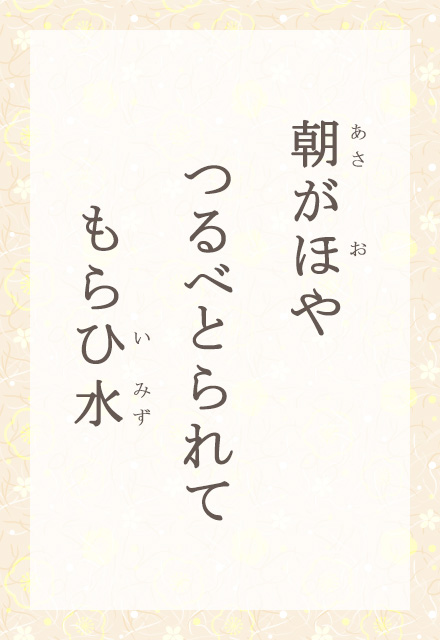 朝がほや
あさ
お
つるべとられて
もらひ水
い
みず